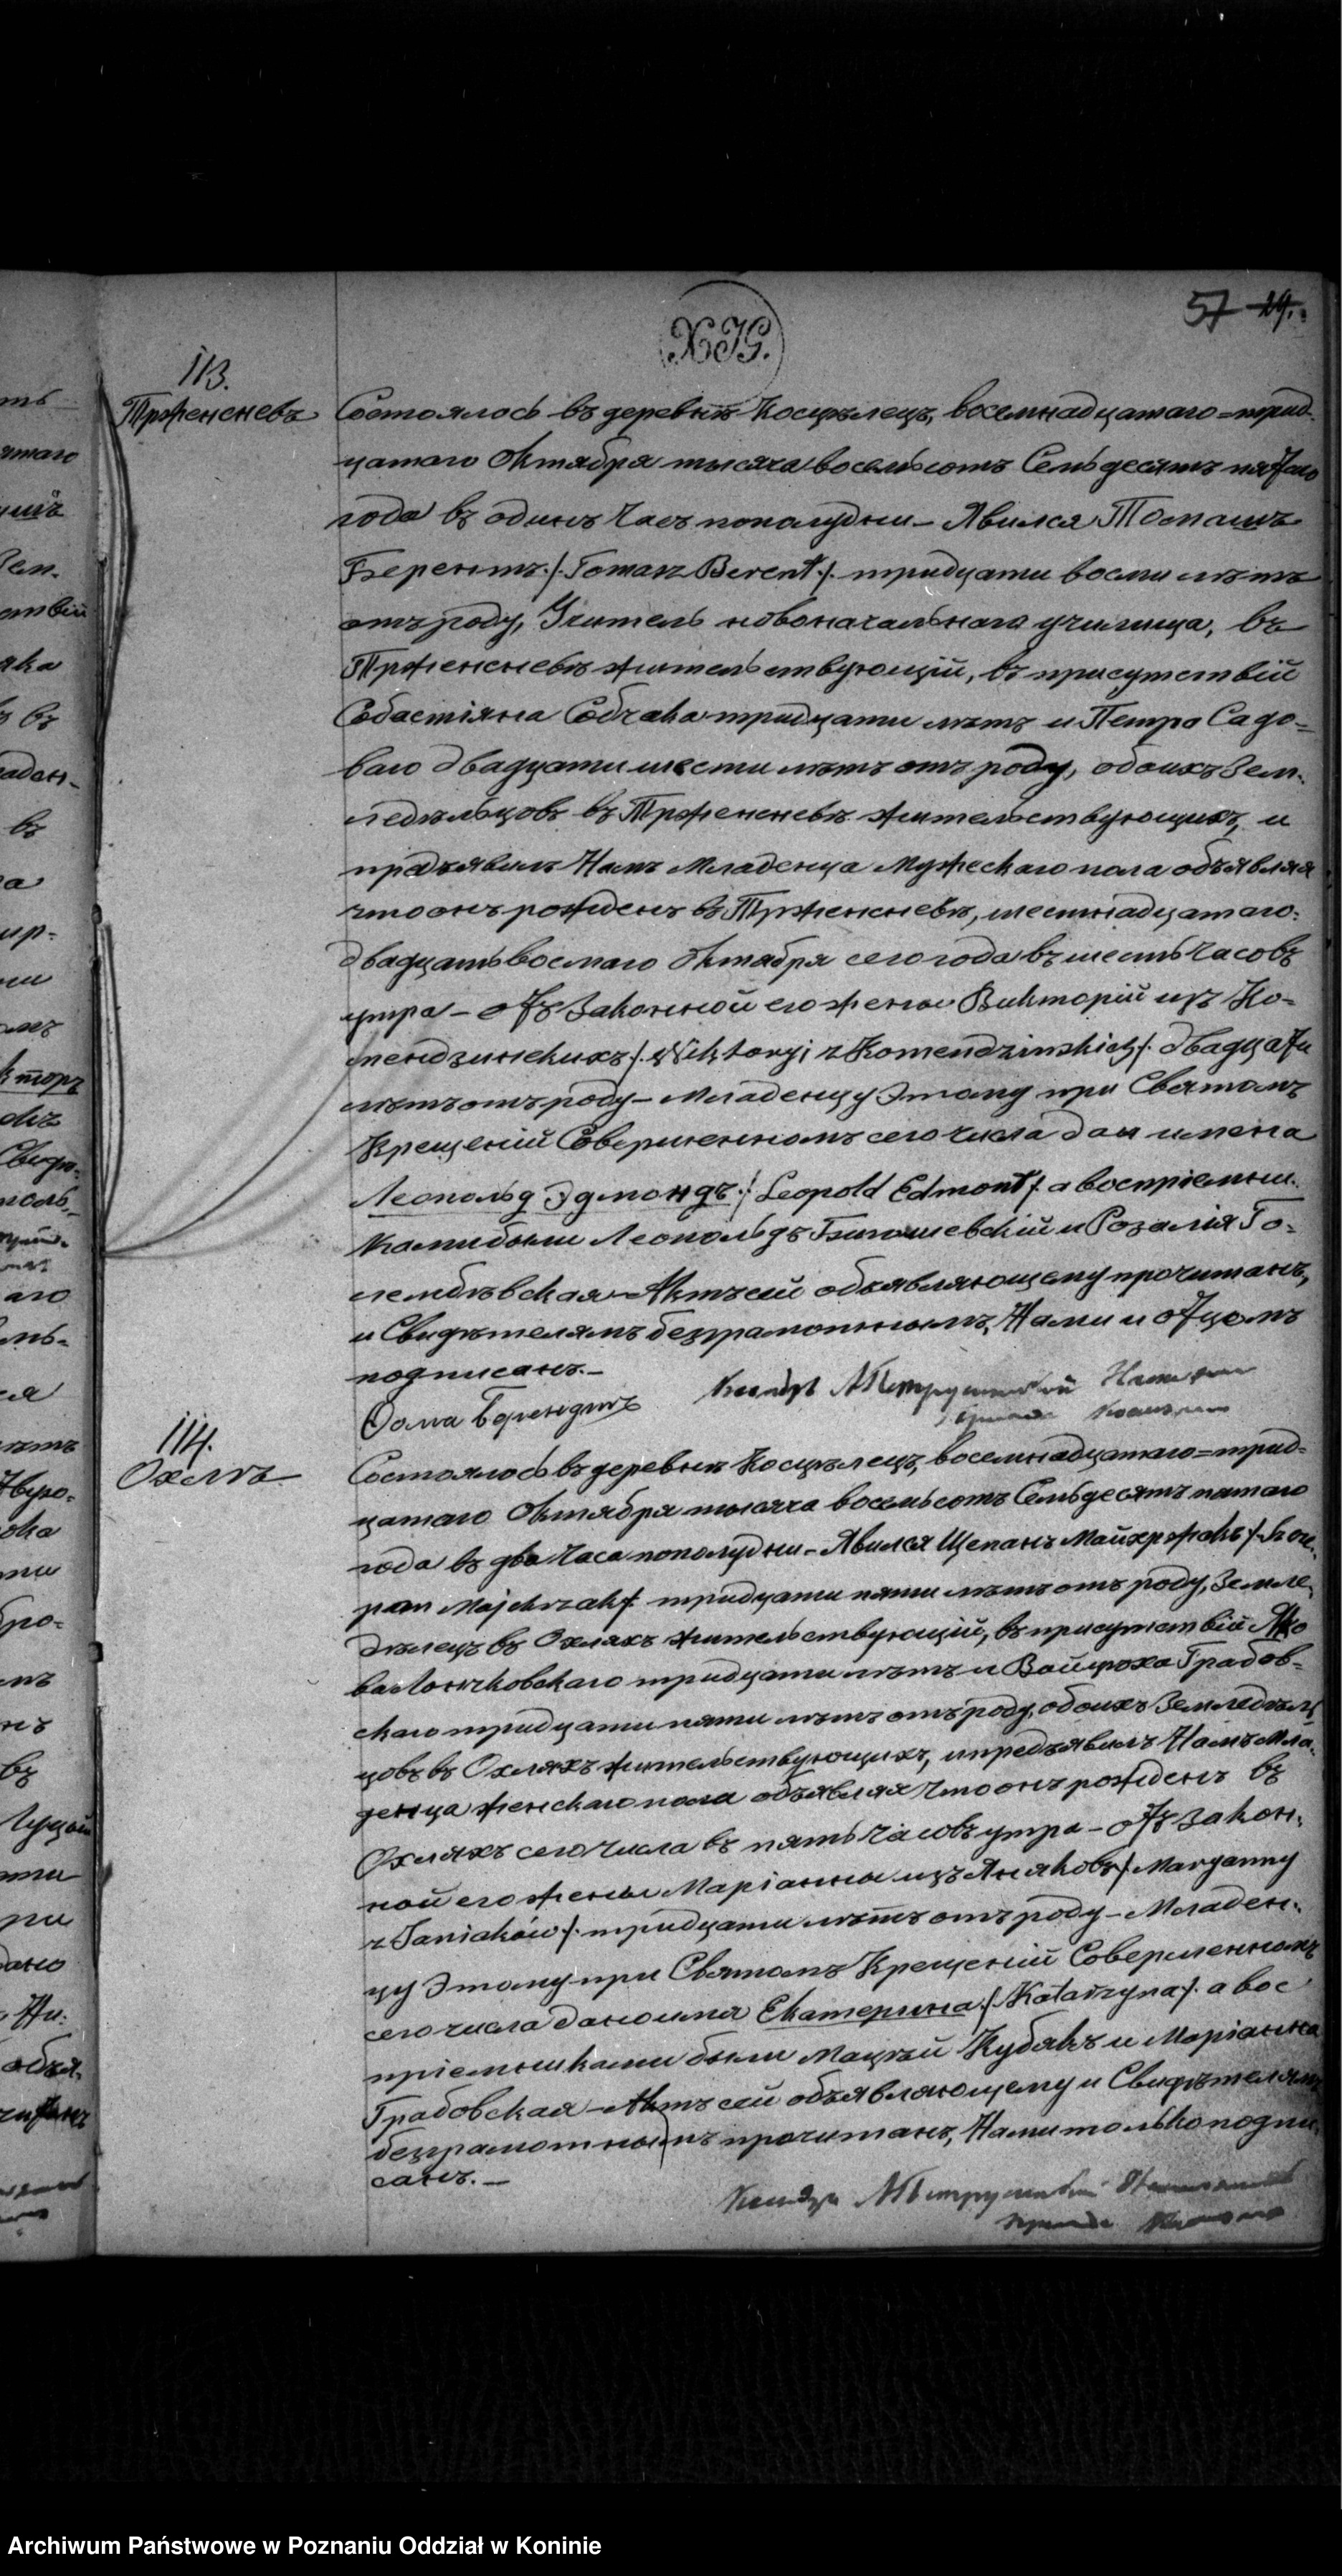 57 29.
XJG.
113.
Трженсневъ
Состоялось въ деревнѣ Косцѣлецъ, восемнадцатаго=трид-
цатаго Октября тысяча восемьсотъ Семьдесятъ пятаго
года въ одинъ часъ пополудни – Явился Томашъ
Берентъ /. Tomasz Berent ./. тридцати восми лѣтъ
отъ роду, Учитель новоначальнаго училища, въ
Трженсневѣ жительствующій, въ присутствій
Собастіяна Собчака тридцати лѣтъ и Петра Садо=
ваго двадцати шести лѣтъ отъ роду, обоихъ Зем-
ледѣльцовъ въ Трженсневѣ жительствующихъ, и
предъявилъ Намъ Младенца Мужескаго пола объявляя
что онъ рожденъ въ Трженсневѣ, шестнадцатаго-
двадцать восмаго Октября сего года въ шесть часовъ
утра – отъ Законной его жены Викторій изъ Ко-
мендзинскихъ /. Wiktoryi z Komendzinskich /. двадцати
лѣтъ отъ роду – Младенцу Этому при Святомъ
Крещеній Совершенномъ сего числа даны имена
Леопольд Эдмондъ ./. Leopold Edmont /. а воспріемни-
ками были Леопольдъ Бигошевскій и Розалія Го-
лембѣвская – Актъ сей объявляющему прочитанъ,
и Свидѣтелямъ безграмотнымъ, Нами и отцомъ
подписанъ. –
Ѳома Берендтъ
114.
Охелъ
Состоялось въ деревнѣ Косцѣлецъ, восемнадцатаго=трид-
цатаго Октября тысяча восемьсотъ Семьдесятъ пятаго
года въ два часа пополудни – Явился Щепанъ Майхржакъ /. Szcze-
pan Majchrzak /. тридцати пяти лѣтъ отъ роду, Земле-
дѣлецъ въ Охляхъ жительствующій, въ присутствій Яко
ва Лончковскаго тридцати лѣтъ и Войцѣха Грабов-
скаго тридцати пяти лѣтъ отъ роду, обоихъ Земледѣль
цовъ въ Охляхъ жительствующихъ, и предъявилъ Намъ Мла-
денца женскаго пола объявляя что онъ рожденъ въ
Охляхъ сего числа въ пять часовъ утра – отъ закон-
ной его жены Маріанны изъ Яняковъ /. Maryanny
z Janiaków /. тридцати лѣтъ отъ роду – Младен-
цу Этому при Святомъ Крещеній Совершенномъ
сего числа дано имя Екатерина ./. Katarzyna /. а вос
пріемниками были Мацѣй Кубякъ и Маріанна
Грабовская – Актъ сей объявляющему и Свидѣтелямъ
безграмотнымъ прочитанъ, Нами только подпи-
санъ. –
Archiwum Państwowe w Poznaniu Oddział w Koninie